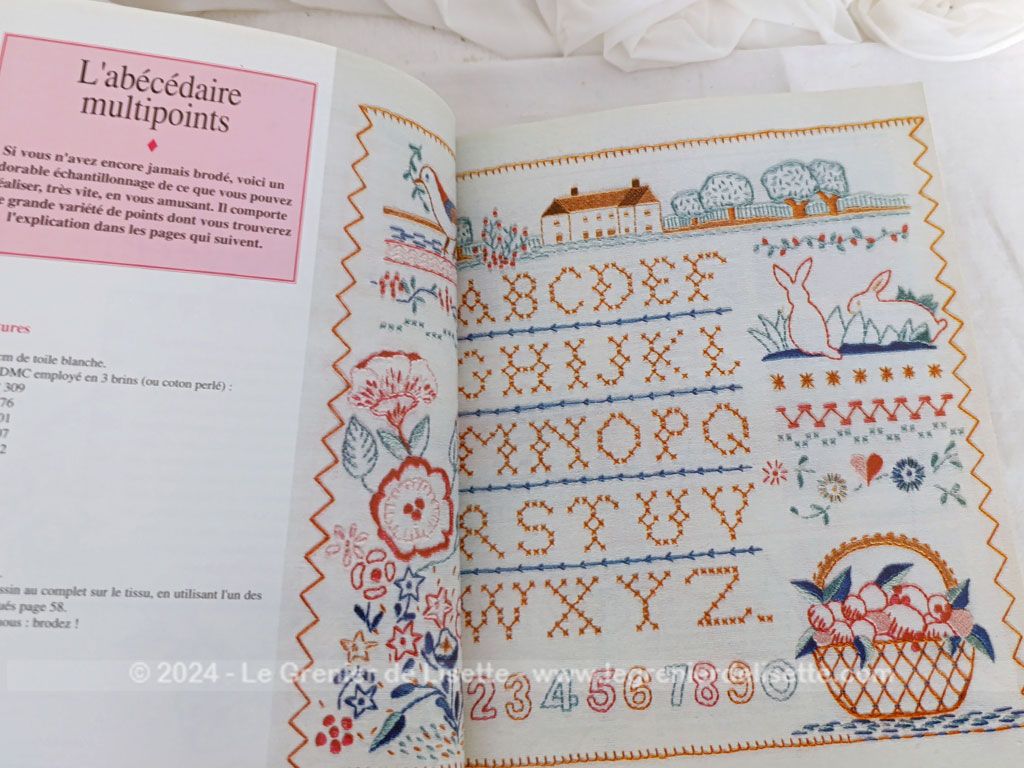 L'abécédaire
multipoints
Si vous n'avez encore jamais brodé, voici un
dorable échantillonnage de ce que vous pouvez
éaliser, très vite, en vous amusant. Il comporte
e grande variété de points dont vous trouverez
l'explication dans les pages qui suivent.
tures
cm de toile blanche.
DMC employé en 3 brins (ou coton perlé) :
309
76
01
07
2
ssin au complet sur le tissu, en utilisant l'un des
ués page 58.
nous : brodez !
ABCDEF
GHIJKL
MNOPQ
RSTUV
WXYZ.
234567890
© 2024 - Le Grenier de Lisette - www.legrenierdelisette.com